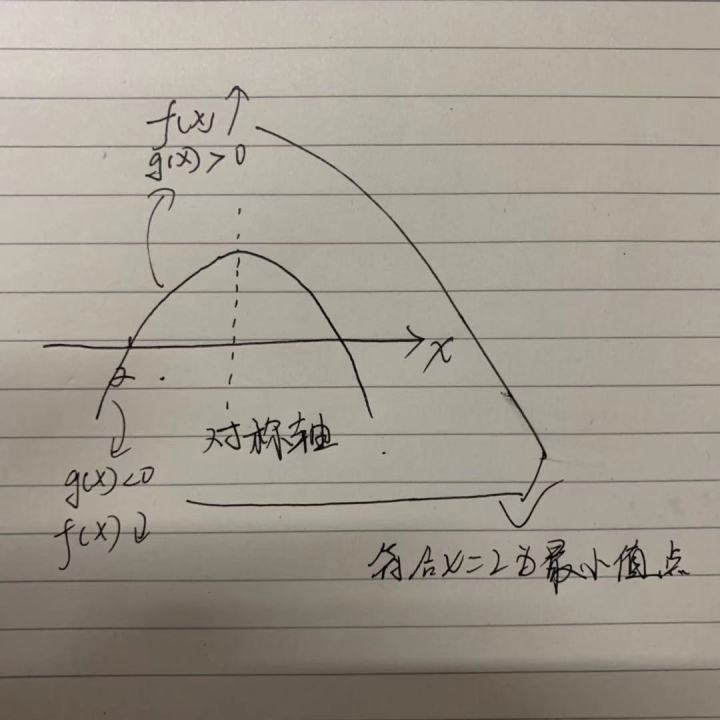 f(x)↑
g(x)>0
x
2
对称轴
g(x)<0
f(x)↓
符合x=2为最小值点